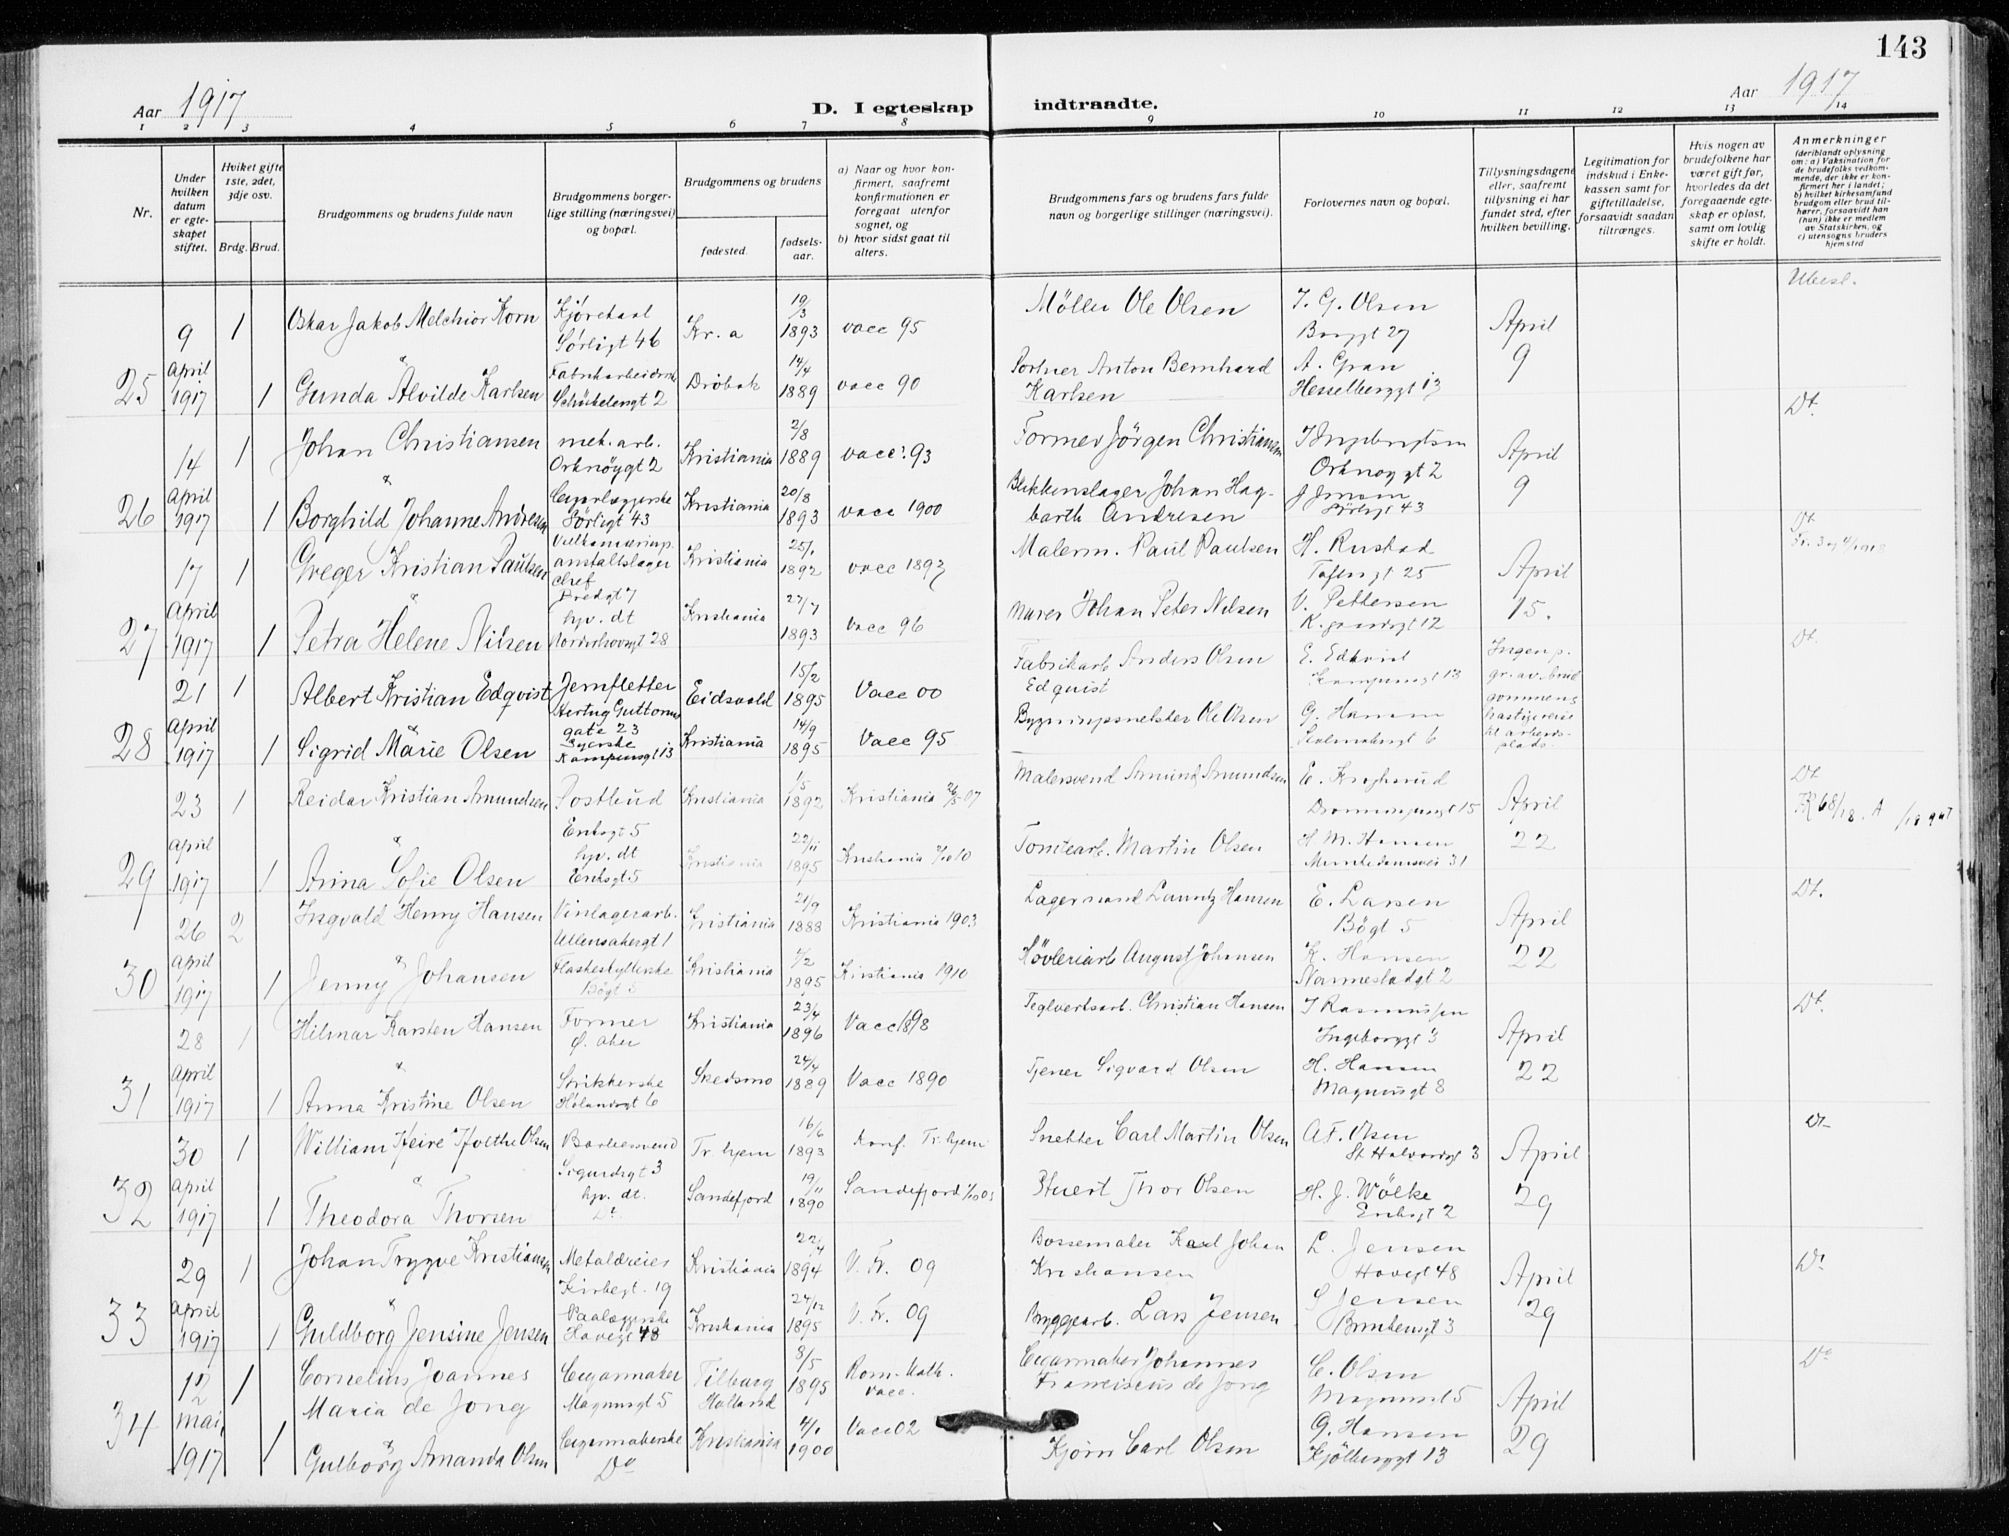 143
Aar 1917
D. I egteskap indtraadte.
Aar 1917
1 2 3 4 5 6 7 8 9 10 11 12 13 14
Nr.
Under hvilken datum er egteskapet stiftet.
Hviket gifte 1ste, 2det, 3dje osv.
Brdg. Brud.
Brudgommens og brudens fulde navn
Brudgommens borgerlige stilling (næringsvei) og bopæl.
Brudgommens og brudens
fødested.
fødselsaar.
a) Naar og hvor konfirmert, saafremt konfirmationen er foregaat utenfor sognet, og
b) hvor sidst gaat til alters.
Brudgommens fars og brudens fars fulde navn og borgerlige stillinger (næringsvei).
Forlovernes navn og bopæl.
Tillysningsdagene eller, saafremt tillysning ei har fundet sted, efter hvilken bevilling.
Legitimation for indskud i Enkekassen samt for giftetilladelse, forsaavidt saadan tiltrænges.
Hvis nogen av brudefolkene har været gift før, hvorledes da det foregaaende egteskap er opløst, samt om lovlig skifte er holdt.
Anmerkninger (deriblandt oplysning om: a) Vaksination for de brudefolks vedkommende, der ikke er konfirmert her i landet; b) hvilket kirkesamfund brudgom eller brud tilhører, forsaavidt han (hun) ikke er medlem av Statskirken, og c) utensogns bruders hjemsted
25
9 April 1917
1
Oskar Jakob Melchior Korn
Sørligt 46
Kr.a
19/3 1893
vacc 95
Møller Ole Olsen
J. G. Olsen
Borggt 27
April 9
Ubesl.
1
Gunda Alvilde Karlsen
Fabrikarbeiderske
Schübelersgt 2
Drøbak
14/4 1889
vacc 90
Anton Bernhard Karlsen
A. Gran
Hesselberggt 13
26
14 April 1917
1
Johan Christiansen
mek. arb.
Orknøygt 2
Kristiania
2/8 1889
vacc. 93
Former Jörgen Christiansen
Orknøygt 2
April 9
Dt.
1
Borghild Johanne Andresen
Sørligt 43
Kristiania
20/8 1893
vacc 1900
Blikkenslager Johan Hagbarth Andresen
Sørligt 43
27
17 April 1917
1
Greger Kristian Paulsen
Vulkaniseringsanstaltslager chef
Bredgt 7
Kristiania
25/1 1892
vacc 1893
Malerm. Paul Paulsen
H. Rustad
Toftesgt 25
April 15.
Dt
1
Petra Helene Nilsen
hjv. dt
Norderhovsgt 28
Kristiania
27/7 1893
Vacc 96
Murer Johan Peter Nilsen
V. Pettersen
28
21 April 1917
1
Albert Kristian Edqvist
Jernfletter
Hertug Guttorms gate 23
Eidsvold
15/2 1895
Vacc 00
Fabrikarb Anders Olsen Edquist
E. Edkvist
Kampensgt 13
gr. av brudgommens hastige reise til arbeidsplads.
Dt.
1
Sigrid Marie Olsen
Syerske
Kampensgt 13
Kristiania
14/9 1895
Vacc 95
Bygningssnekker Ole Olsen
G. Hansen
29
23 April 1917
1
Reidar Kristian Amundsen
Postbud
Enksgt 5
Kristiania
1/5 1892
Kristiania 26/5 07
Malersvend Amund Amundsen
E. Kroghsrud
Drammensgt 15
April 22
Dt
1
Anna Sofie Olsen
hjv. dt
Enksgt 5
Kristiania
22/11 1895
Kristiania
Tomtearb. Martin Olsen
H M. Hansen
Munkedamsvei 31
30
26 April 1917
2
Ingvald Henry Hansen
Vinlagerarb.
Ullensakergt 1
Kristiania
21/9 1888
Kristiania 1903
Lagermand Lauritz Hansen
E. Larsen
Bøgt 5
April 22
Dt.
1
Jenny Johansen
Flaskeskyllerske
Bøgt 5
Kristiania
1895
Kristiania 1910
Høvleriarb August Johansen
K. Hansen
Nannestadgt 2
31
28 April 1917
1
Hilmar Karsten Hansen
Former
Ø. Aker
Kristiania
23/4 1896
Vacc 1898
Teglverksarb. Christian Hansen
J Rasmussen
Ingeborggt 3
April 22
Dt.
1
Anna Kristine Olsen
Strikkerske
Hølandsgt 6
Skedsmo
24/4 1889
Vacc 1890
Tjener Sigvard Olsen
H. Hansen
Magnusgt 8
32
30 April 1917
1
William Olsen
Barbersvend
Sigurdsgt 3
Tr. hjem
16/6 1893
Konf. Tr. hjem
Snekker Carl Martin Olsen
A F. Olsen
St Halvardsgt 3
April 29
Dt
1
Theodora Thorsen
hjv. dt.
Dt
Sandefjord
19/11 1890
Sandefjord
Stuert Thor Olsen
H. J. Wölke
Enksgt 2
33
29 April 1917
1
Johan Trygve Kristiansen
Metaldreier
Kirkegt. 19
Kristiania
22/4 1894
V. Fr. 09
Bossemaker Karl Johan Kristiansen
L. Jensen
Hovegt 48
April 29
Do
1
Guldborg Jensine Jensen
Paalæggerske
Hovegt 48
Kristiania
24/12 1895
V. Fr. 09
Byggearb. Lars Jensen
S Jensen
34
12 mai, 1917
1
Cornelius Joannes Maria de Jong
Cigarmaker
Magnusgt 5
Tilburg Holland
8/5 1895
Rom. Kath. vacc.
Cigarmaker Johannes Franciscus de Jong
C. Olsen
Magnusgt 5
April 29
Do
1
Gulborg Amanda Olsen
Cigarmakerske
Do
Kristiania
4/1 1900
Vacc 02
Kjørn Carl Olsen
G. Hansen
Kjölberggt 13